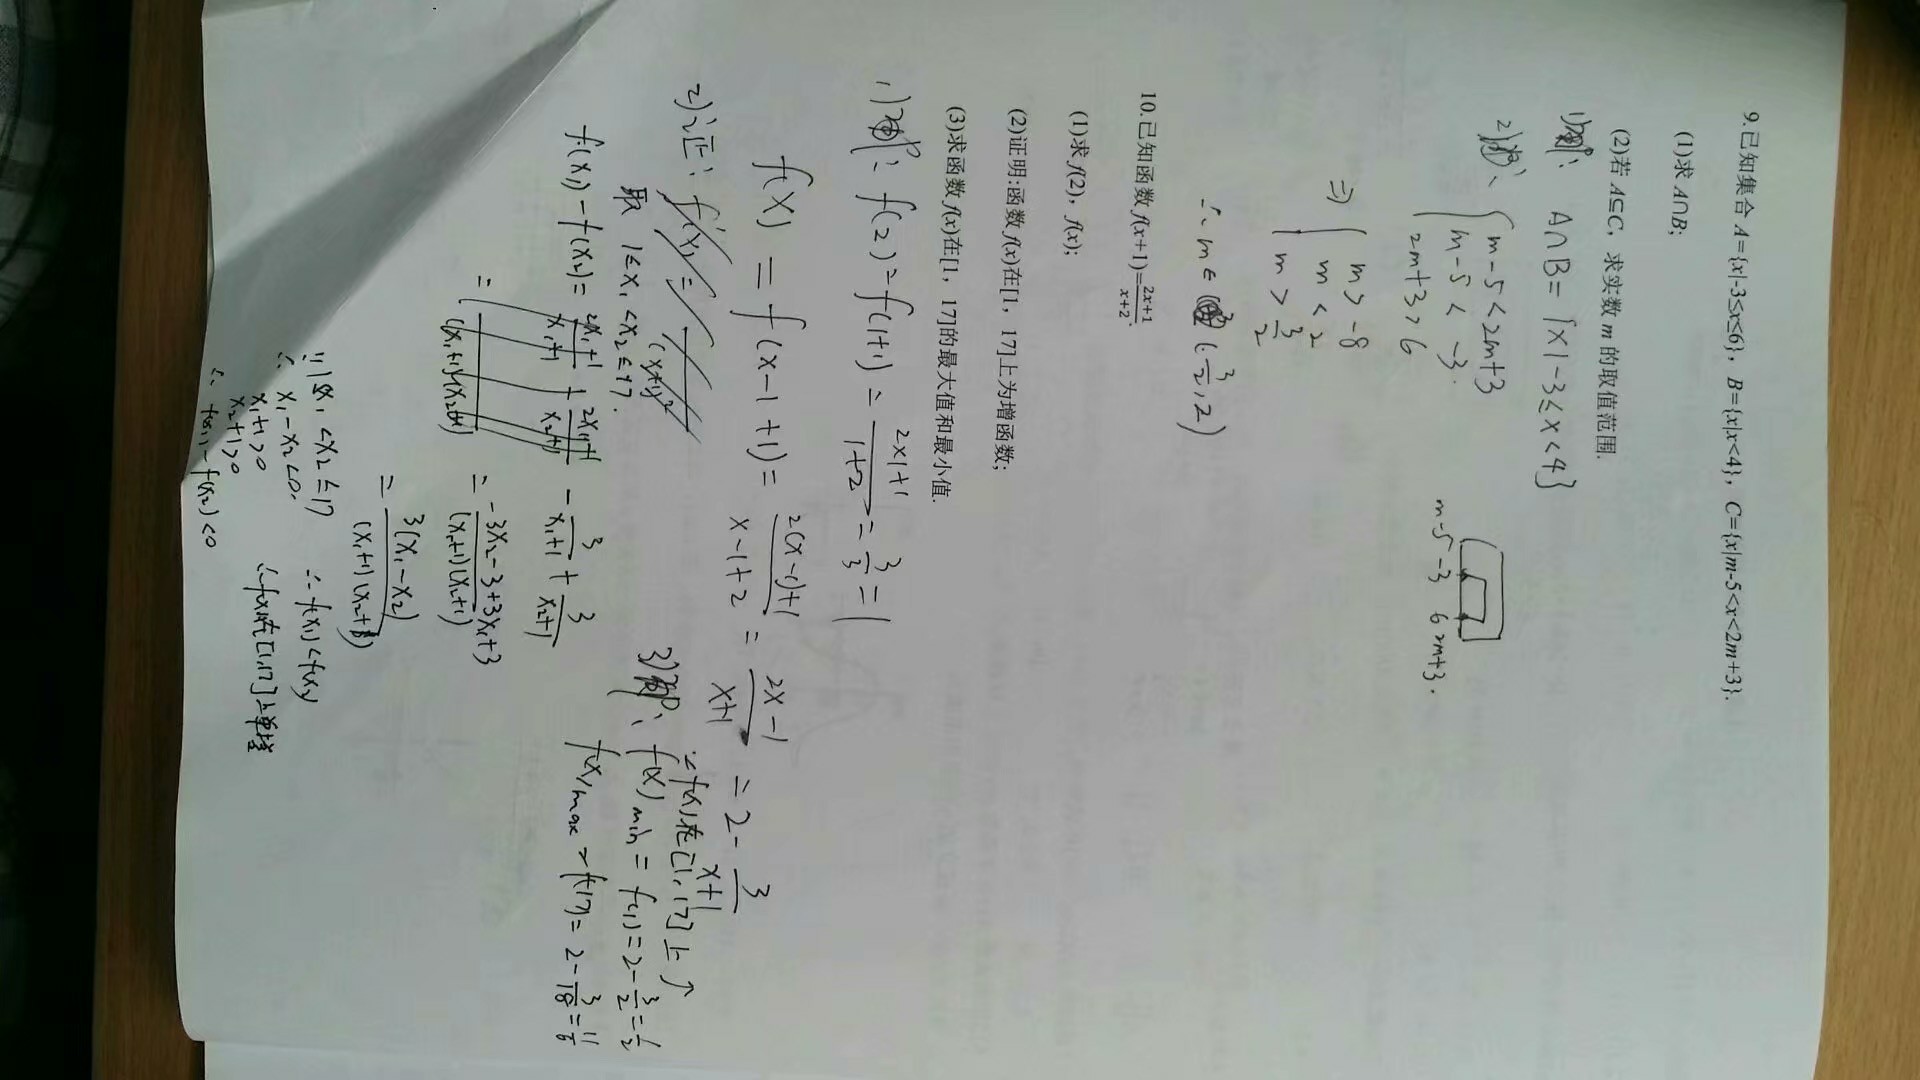 9.已知集合 A={x|-3≤x≤6}, B={x|x<4}, C={x|m-5<x<2m+3}.
(1)求 A∩B;
(2)若 A⊆C, 求实数 m 的取值范围.
1)解: A∩B={x|-3≤x<4}
2)解、 { m-5<2m+3
m-5< -3.
2m+3>6
m-5 -3 6 2m+3.
⇒ { m>-8
m<2
m>3/2
∴ m∈(3/2,2)
10.已知函数 f(x+1)=(2x+1)/(x+2).
(1)求 f(2), f(x);
(2)证明:函数 f(x)在[1, 17]上为增函数;
(3)求函数 f(x)在[1, 17]的最大值和最小值.
1)解: f(2)=f(1+1)=(2×1+1)/(1+2)=3/3=1
f(x)=f(x-1+1)=(2(x-1)+1)/(x-1+2)=(2x-1)/(x+1)=2-3/(x+1)
2)证:
取 1≤x₁<x₂≤17.
f(x₁)-f(x₂)= -3/(x₁+1)+3/(x₂+1)
=(-3x₂-3+3x₁+3)/((x₁+1)(x₂+1))
=3(x₁-x₂)/((x₁+1)(x₂+1))
∵1≤x₁<x₂≤17
∴ x₁-x₂<0.
x₁+1>0
x₂+1>0
∴ f(x₁)-f(x₂)<0
∴ f(x₁)<f(x₂)
∴f(x)在[1,17]上单增
3)解: ∵f(x)在[1,17]上↑
f(x)min=f(1)=2-3/2=1/2
f(x)max=f(17)=2-3/18=11/6